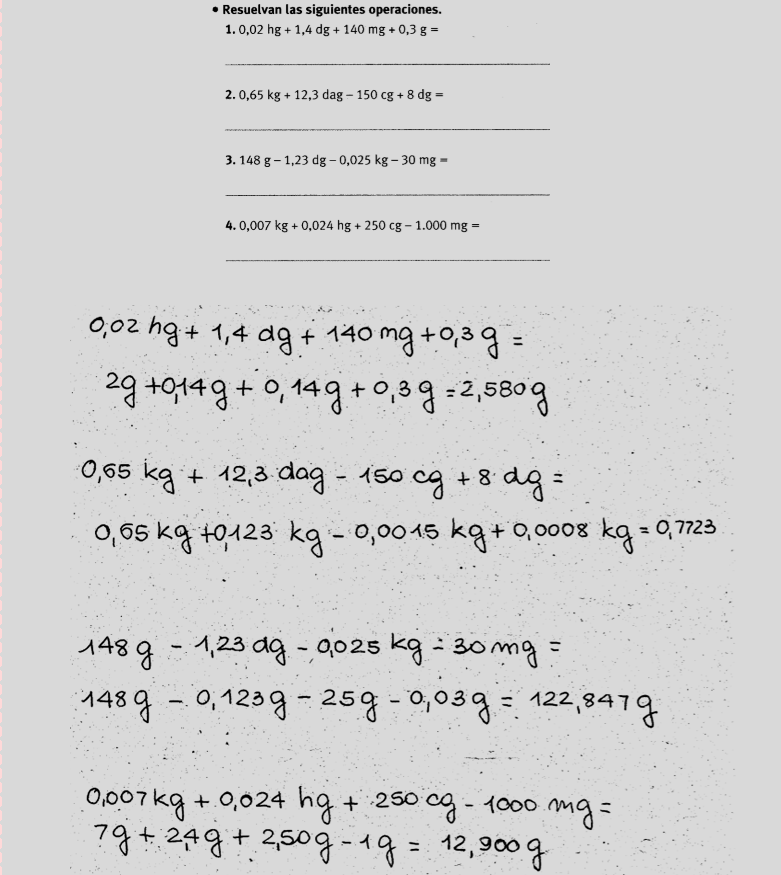 • Resuelvan las siguientes operaciones.
1. 0,02 hg + 1,4 dg + 140 mg + 0,3 g =
2. 0,65 kg + 12,3 dag – 150 cg + 8 dg =
3. 148 g – 1,23 dg – 0,025 kg – 30 mg =
4. 0,007 kg + 0,024 hg + 250 cg – 1.000 mg =
0,02 hg + 1,4 dg + 140 mg + 0,3 g =
2g + 0,14g + 0,14g + 0,3g = 2,580g
0,65 kg + 12,3 dag - 150 cg + 8 dg =
0,65 kg + 0,123 kg - 0,0015 kg + 0,0008 kg = 0,7723
148 g - 1,23 dg - 0,025 kg - 30 mg =
148 g - 0,123g - 25g - 0,03g = 122,847g
0,007 kg + 0,024 hg + 250 cg - 1000 mg =
7g + 2,4g + 2,50g - 1g = 12,900g